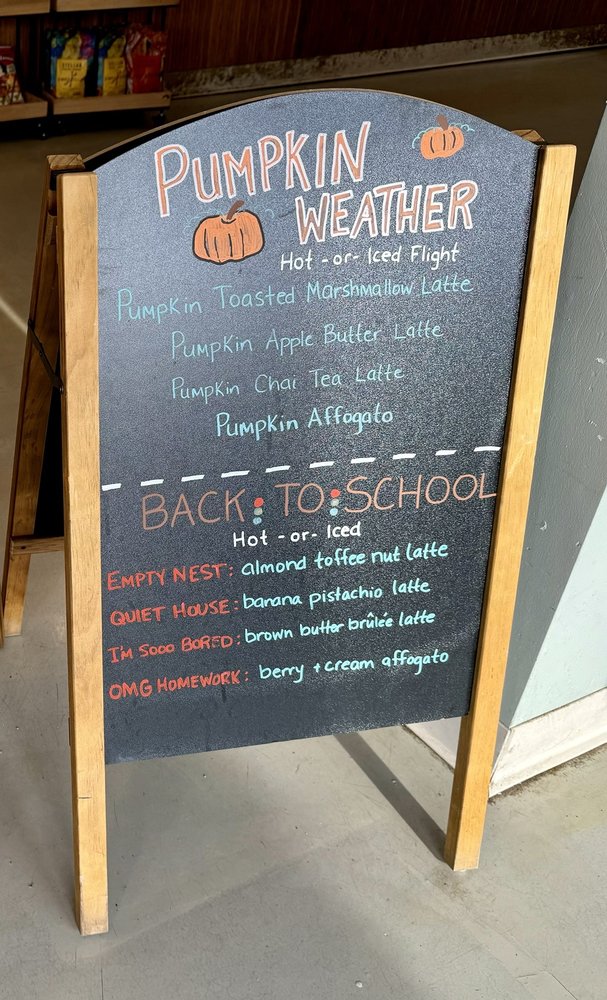 PUMPKIN
WEATHER
Hot -or- Iced Flight
Pumpkin Toasted Marshmallow Latte
Pumpkin Apple Butter Latte
Pumpkin Chai Tea Latte
Pumpkin Affogato
BACK TO SCHOOL
Hot -or- Iced
EMPTY NEST: almond toffee nut latte
QUIET HOUSE: banana pistachio latte
I'M SOOO BORED: brown butter brûlée latte
OMG HOMEWORK: berry + cream affogato